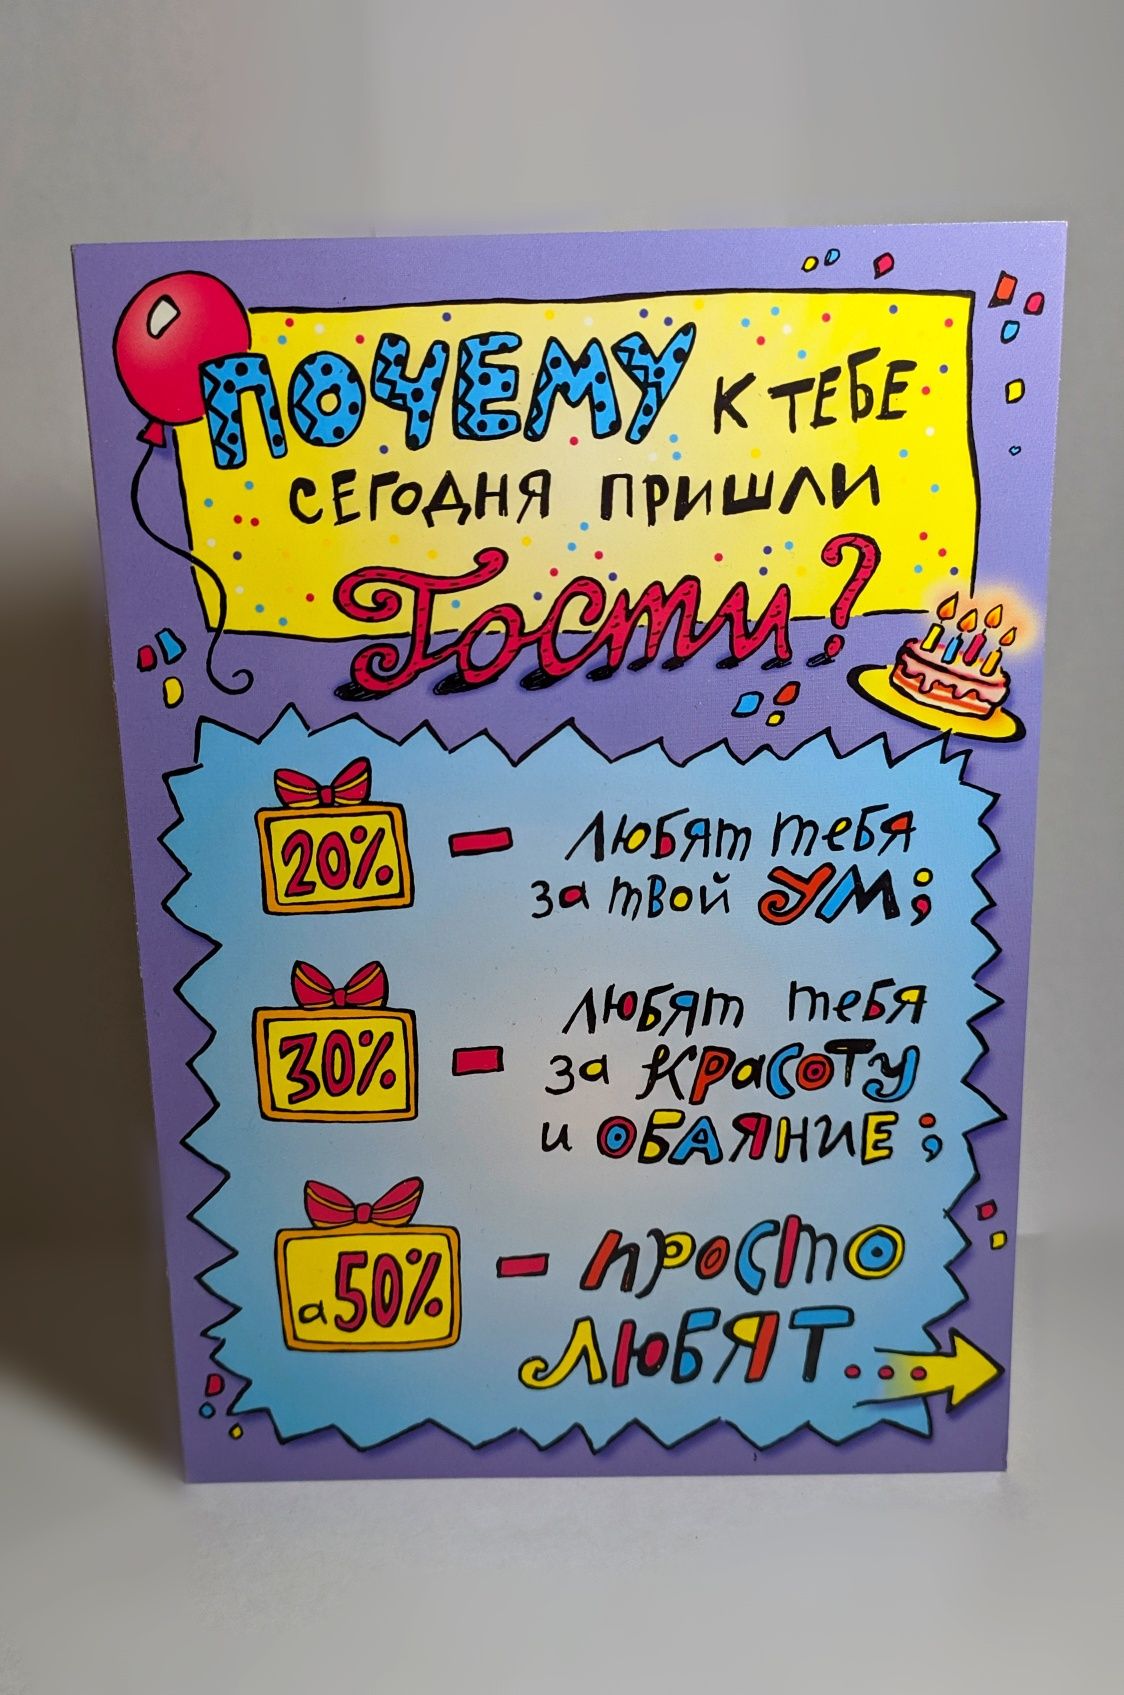 ПОЧЕМУ К ТЕБЕ
СЕГОДНЯ ПРИШЛИ
Гости?
20% - ЛЮБЯТ ТЕБЯ
за твой УМ;
30% - ЛЮБЯТ ТЕБЯ
за КРАСОТУ
и ОБАЯНИЕ;
а 50% - ПРОСТО
ЛЮБЯТ...